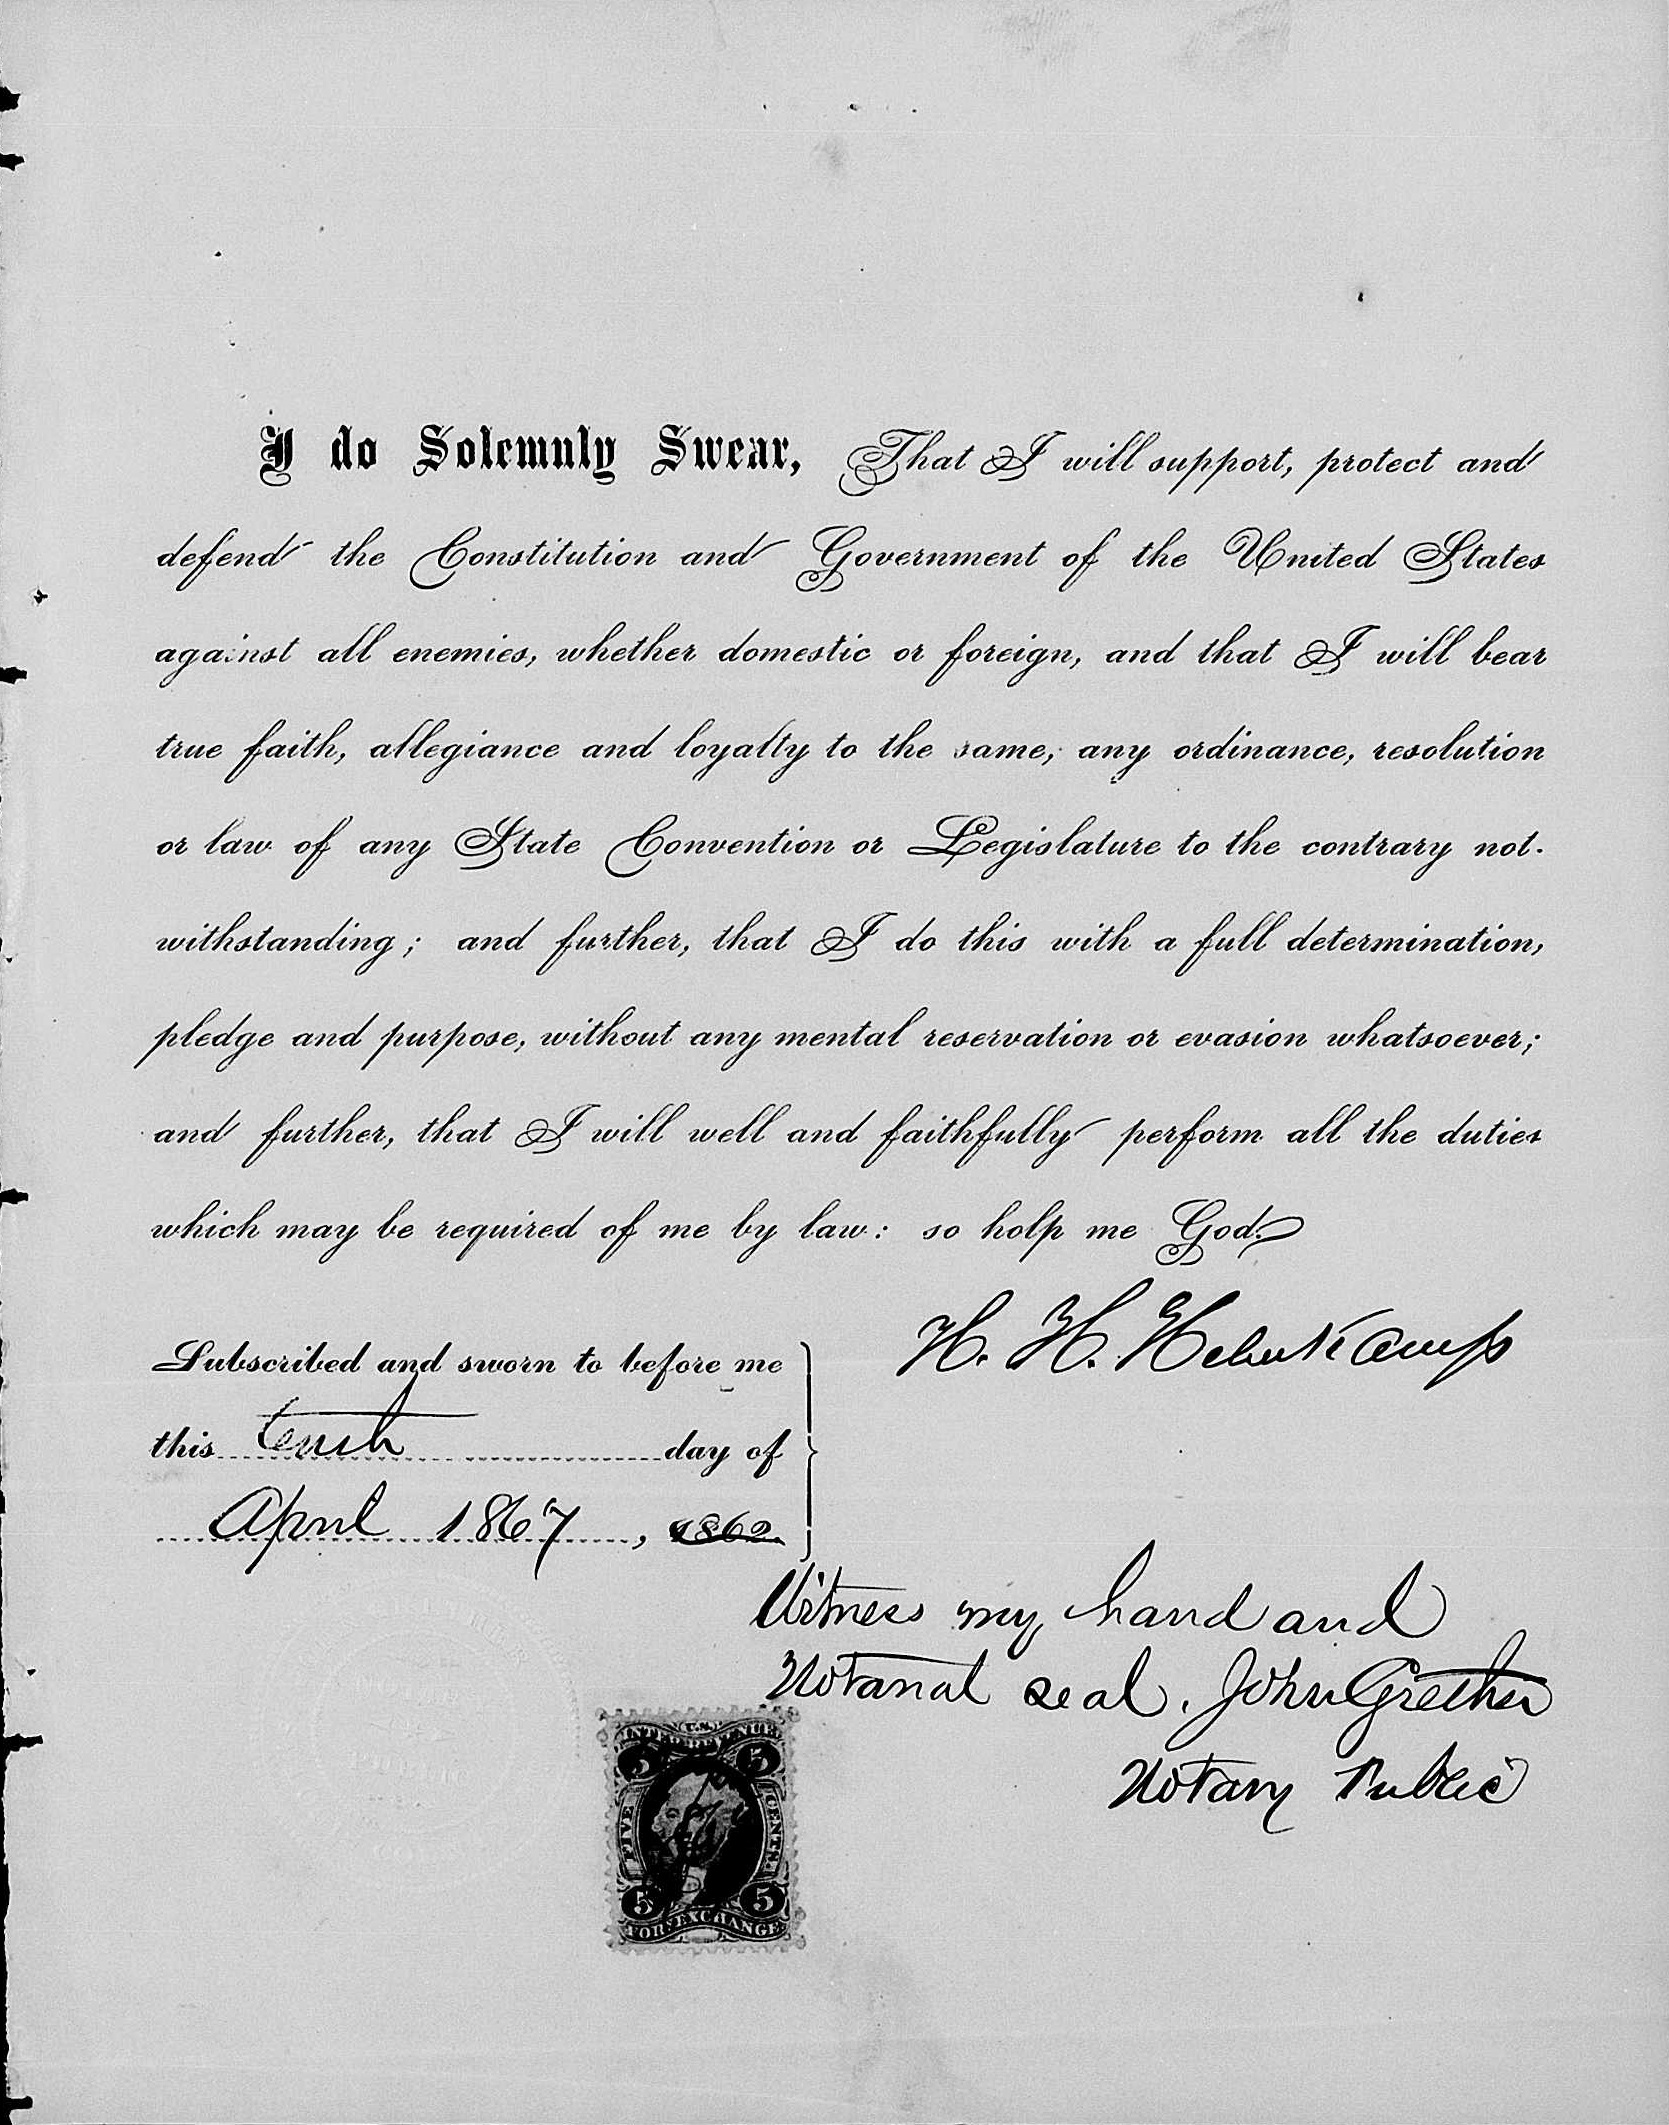 I do Solemnly Swear, That I will support, protect and
defend the Constitution and Government of the United States
against all enemies, whether domestic or foreign, and that I will bear
true faith, allegiance and loyalty to the same, any ordinance, resolution
or law of any State Convention or Legislature to the contrary not-
withstanding; and further, that I do this with a full determination,
pledge and purpose, without any mental reservation or evasion whatsoever;
and further, that I will well and faithfully perform all the duties
which may be required of me by law: so help me God.
H. H.
Subscribed and sworn to before me
this tenth day of
April 1867, 1862.
Witness my hand and
Notarial seal. John Grether
Notary Public
U.S.
INTER. REVENUE
5 5
FIVE CENTS
5 5
FOR. EXCHANGE